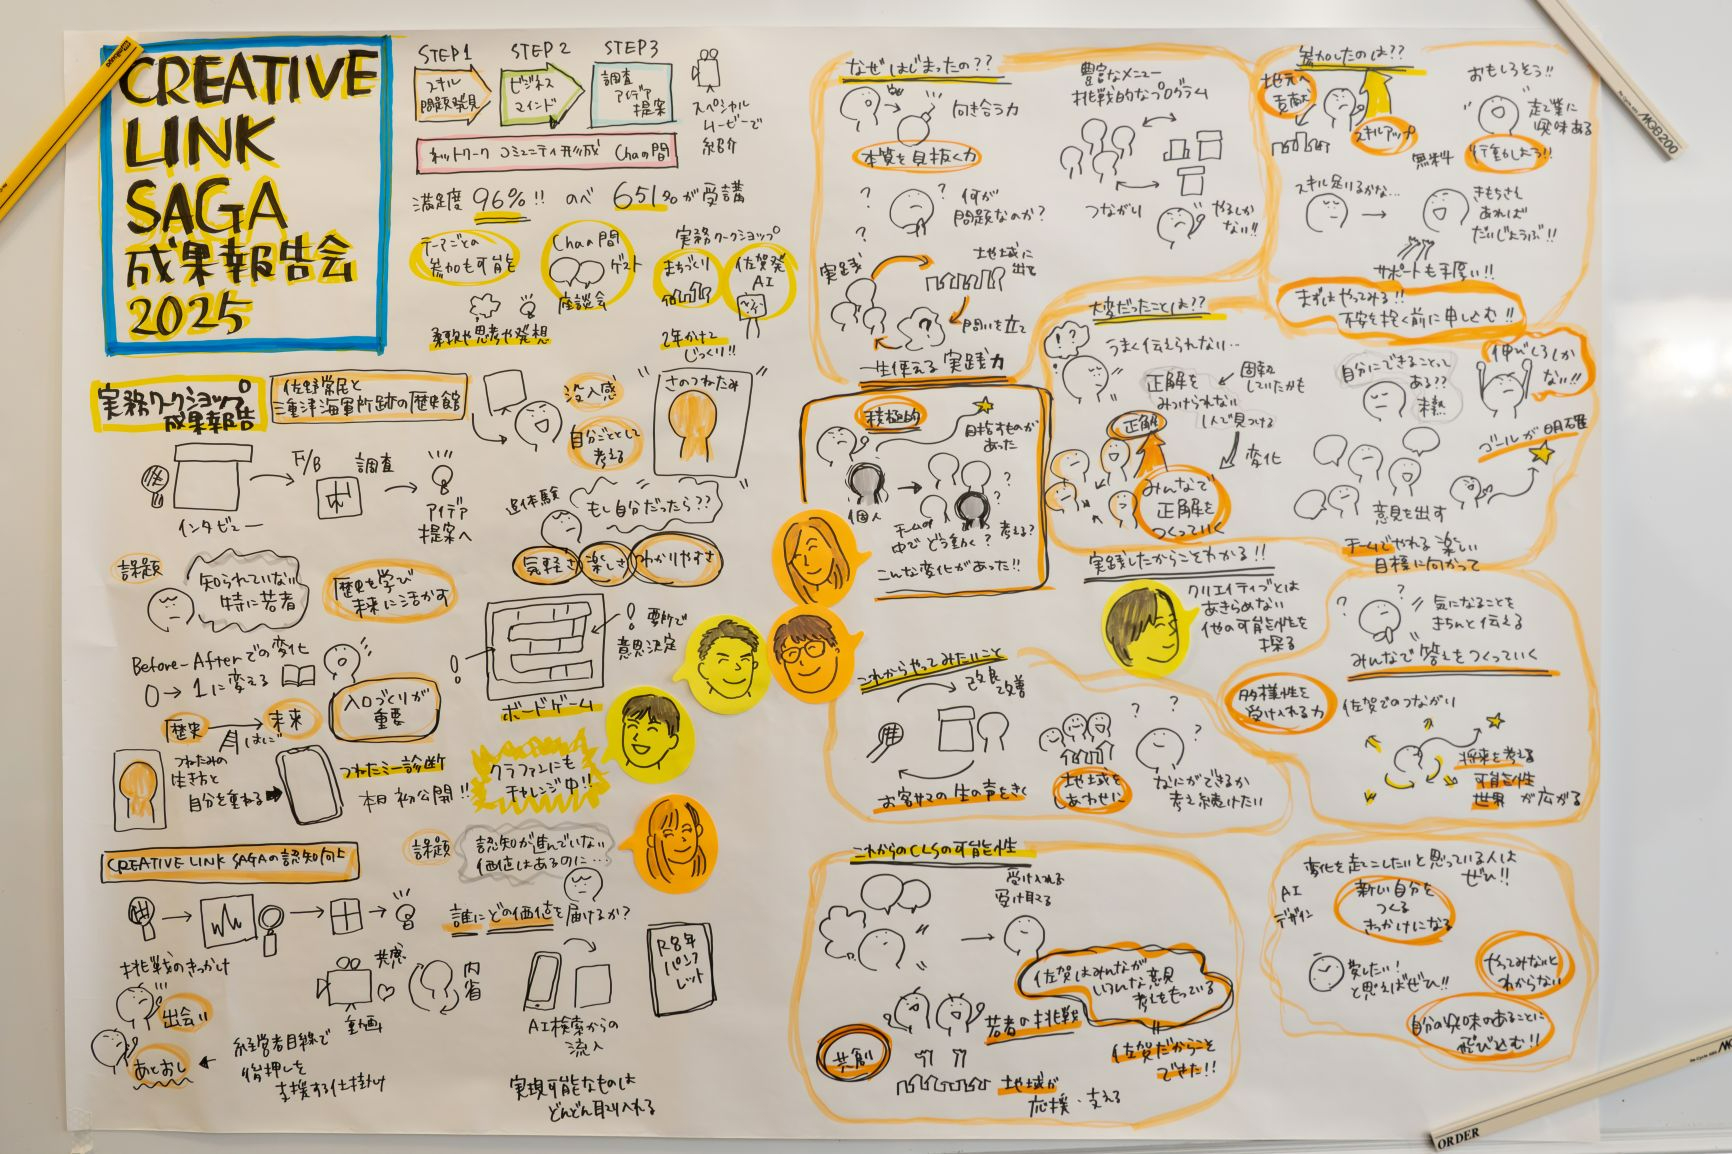 CREATIVE
LINK
SAGA
成果報告会
2025
STEP1
スキル
問題発見
STEP2
ビジネス
マインド
STEP3
調査
アイデア
提案
スペシャル
ムービーで
紹介
ネットワーク コミュニティ形成 Chaの間
満足度 96%!! のべ 651名が受講
テーマごとの
参加も可能
Chaの間
ゲスト
座談会
実務ワークショップ
まちづくり
佐賀発
AI
柔軟や思考や発想
2年かけて
じっくり!!
実務ワークショップ
成果報告
佐野常民と
三重津海軍所跡の歴史館
没入感
自分ごととして
考える
さのつねたみ
インタビュー
F/B
調査
アイデア
提案へ
追体験
もし自分だったら??
気軽さ
楽しさ
わかりやすさ
課題
知られていない
特に若者
歴史を学び
未来に活かす
Before-Afterでの変化
0→1に変える
入口づくりが
重要
歴史
未来
はしご
つねたみの
生き方と
自分を重ねる
つねたミー診断
本日初公開!!
!
要所で
意思決定
ボードゲーム
クラファンにも
チャレンジ中!!
CREATIVE LINK SAGAの認知向上
課題
認知が進んでいない
価値はあるのに…
誰にどの価値を届けるか?
挑戦のきっかけ
出会い
あとおし
経営者目線で
後押しを
支援する仕掛け
共感
動画
内省
AI検索からの
流入
R8年
パンフ
レット
実現可能なものは
どんどん取り入れる
なぜはじまったの??
向き合う力
本質を見抜く力
何が
問題なのか?
実践
地域に
出て
問いを立て
一生使える実践力
豊富なメニュー
挑戦的なプログラム
つながり
やるしか
ない!!
参加したのは??
地元へ
貢献
スキルアップ
無料
おもしろそう!!
起業に
興味ある
行動したろ!!
スキル足りるかな…
きもちさえ
あれば
だいじょうぶ!!
サポートも手厚い!!
まずはやってみる!!
不安を抱く前に申し込む!!
積極的
目指すものが
あった
個人
チームの
中でどう動く? 考える?
こんな変化があった!!
大変だったことは??
うまく伝えられない…
正解を
みつけられない
固執
していたかも
1人で見つける
変化
正解
みんなで
正解を
つくっていく
自分にできることって
ある??
未熟
伸びしろしか
ない!!
ゴールが明確
意見を出す
チームでやれる楽しい
目標に向かって
実践したからこそわかる!!
クリエイティブとは
あきらめない
他の可能性を
探る
気になることを
きちんと伝える
みんなで答えをつくっていく
多様性を
受け入れる力
佐賀でのつながり
将来を考える
可能性
世界が広がる
これからやってみたいこと
改良
改善
お客サマの生の声をきく
地域を
しあわせに
なにができるか
考え続けたい
これからのCLSの可能性
受け入れる
受け取る
佐賀はみんなが
いろんな意見
考えをもっている
佐賀だからこそ
できた!!
若者の挑戦
共創
地域が
応援・支える
変化を起こしたいと思っている人は
ぜひ!!
AI
デザイン
新しい自分を
つくる
きっかけになる
変したい!
と思えばぜひ!!
やってみないと
わからない
自分の興味のあることに
飛び込む!!
MGB200
ORDER